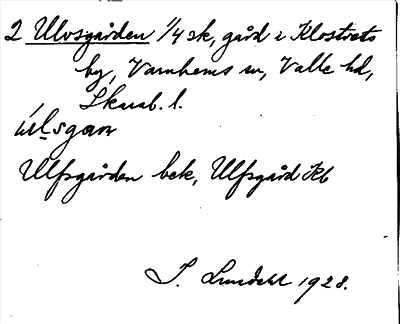 2 Ulvsgården 1/4 sk, gård i Klostrets
by, Varnhems sn, Valle hd,
Skarab. l.
úlsgan
Ulfsgården bek, Ulfsgård Kb
I. Lundahl 1928.